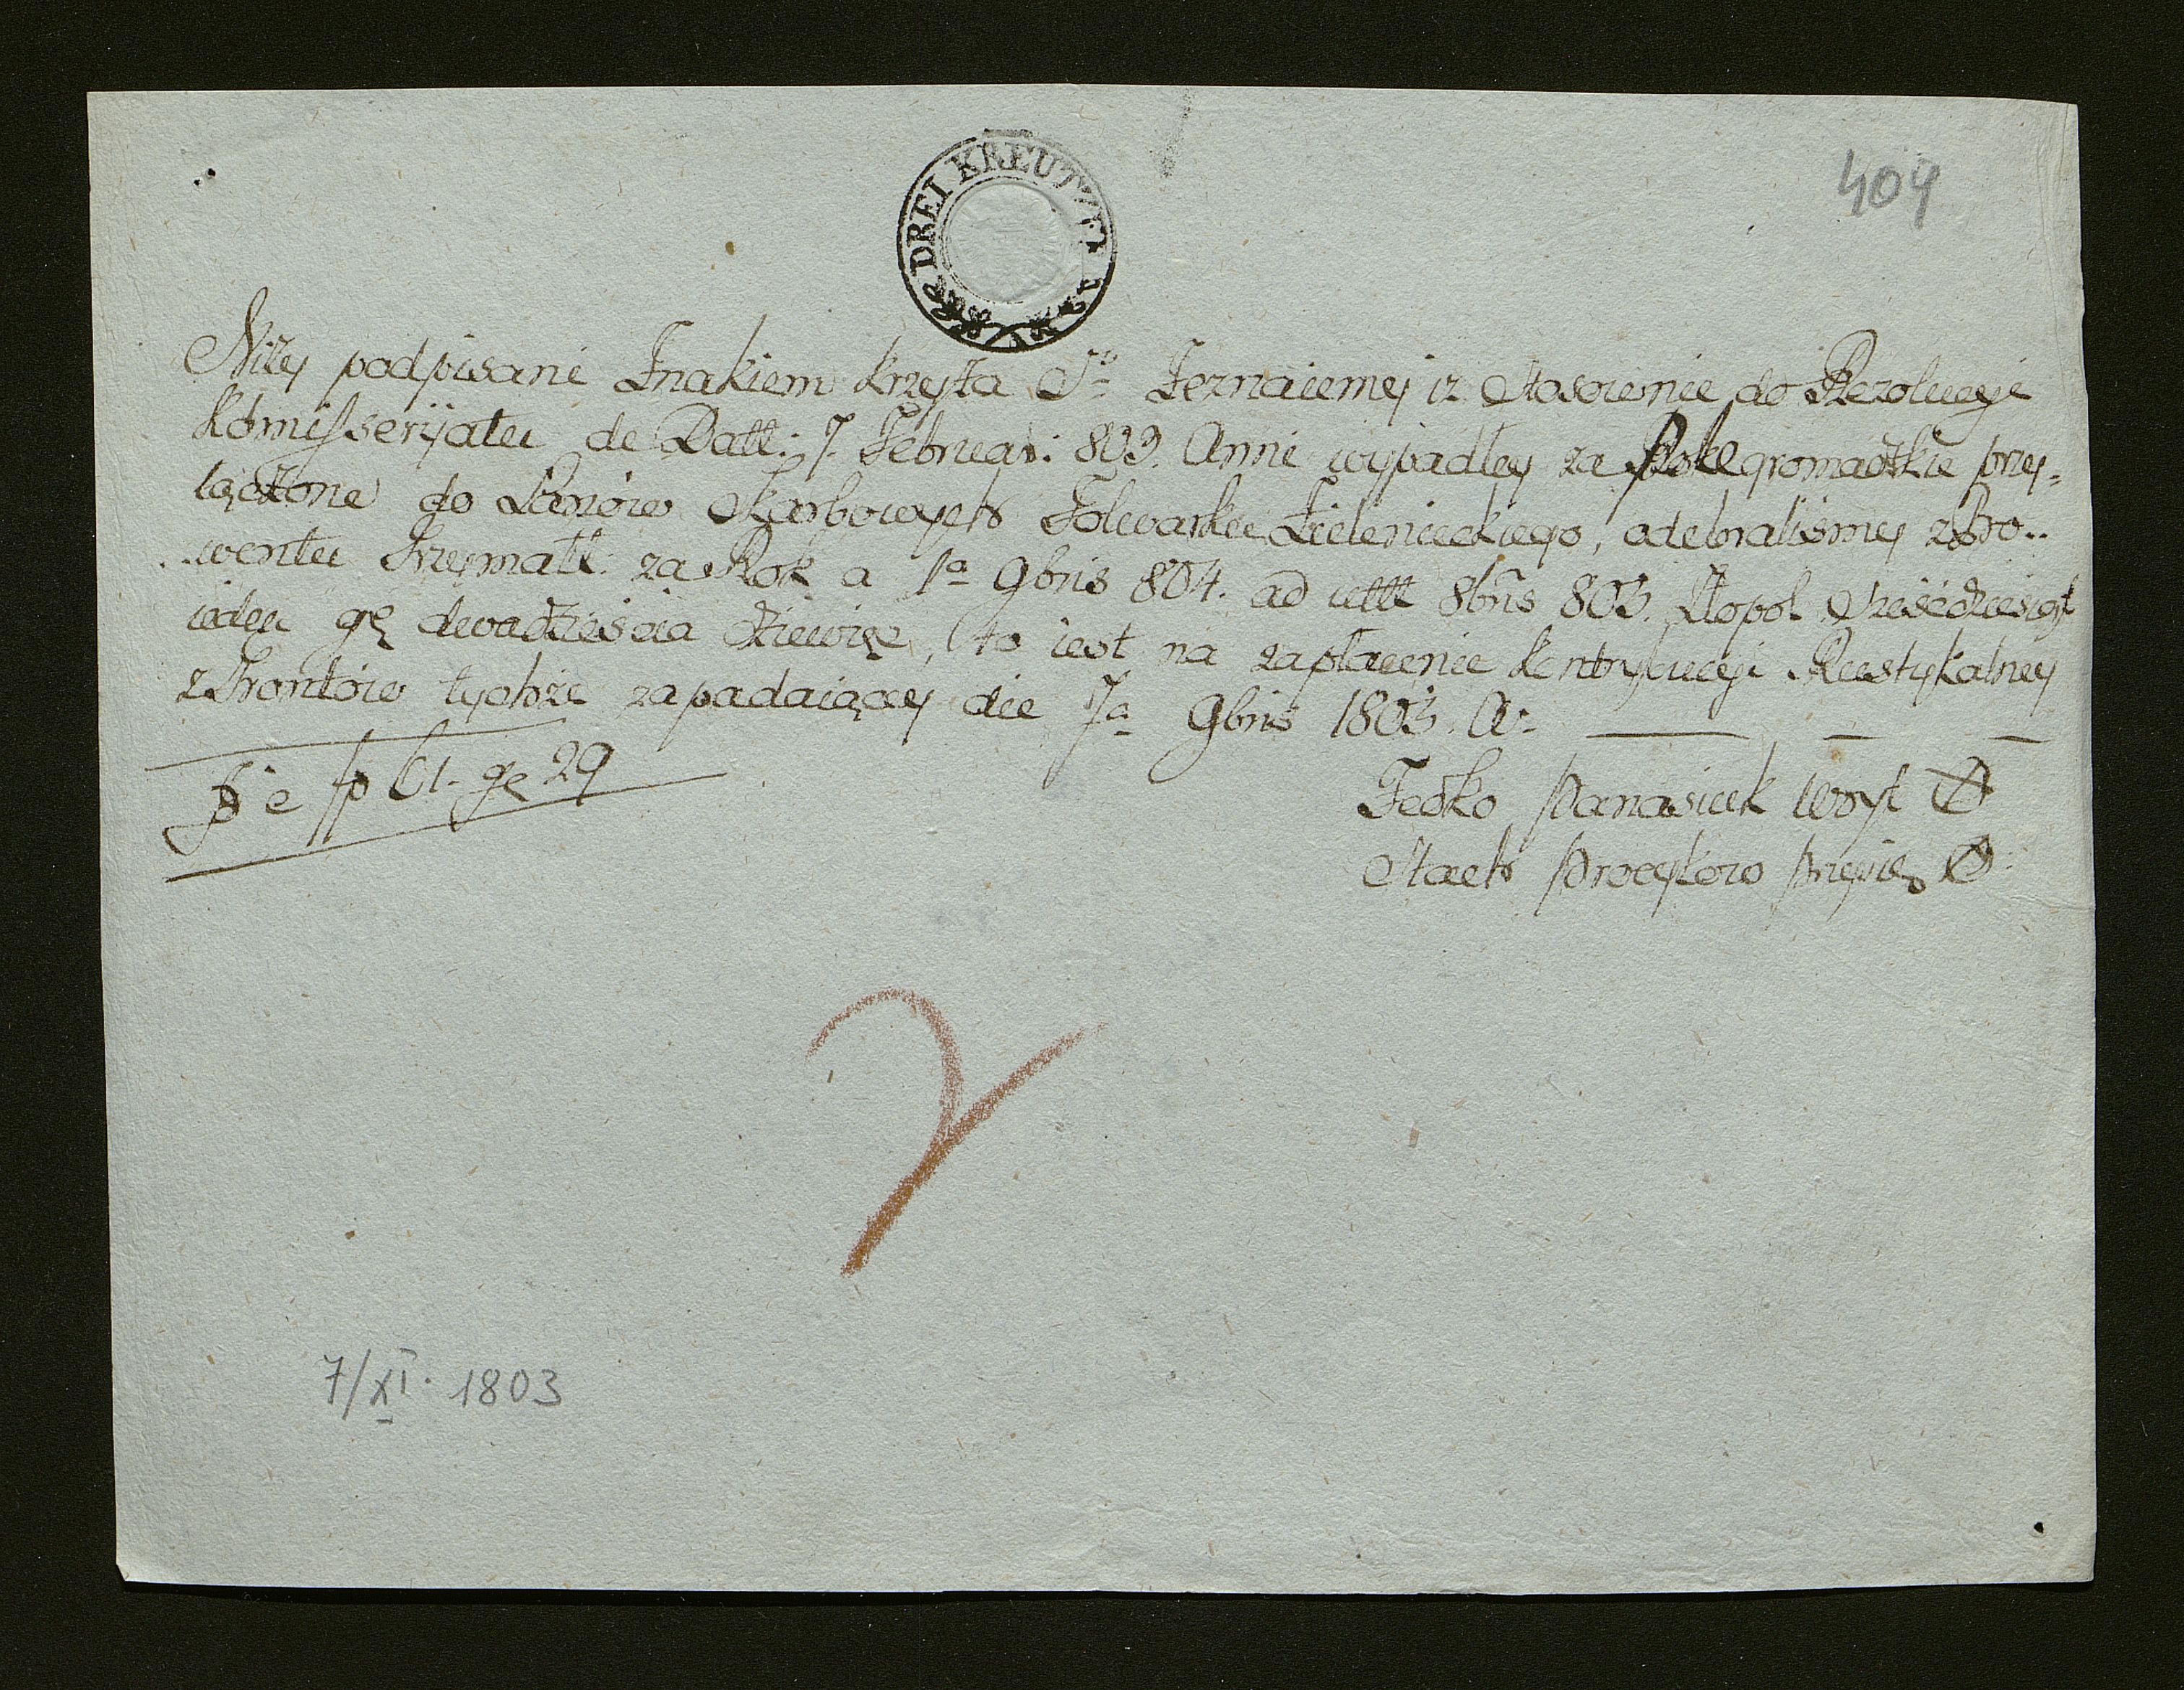 DREI KREUTZER
404
Niżey podpisani Znakiem krzyża Sgo Zeznaiemy iz Stosownie do Rezolucyi
Komisseryatu de Datt: 7. Februar: 803. Anni wypadłey za Pole gromadzkie przy=
łączone do Łanów Skarbowych Folwarku Zielenieckiego, odebraliśmy z Pro..
..wentu Trzymałł: za Rok a 1a 9bris 804. ad ulttt 8bris 803. Złopol Sześćdziesiąt
ieden gr dwadzieścia dziewięć, to iest na zapłacenie kontrybucyi Rustykalney
z Gruntów tychże zapadaiącey die 7a 9bris 1803. A:
fp 61 - gr 29
Fedko Panasiuk Woyt
Stach Procykow Przysię
7/XI. 1803